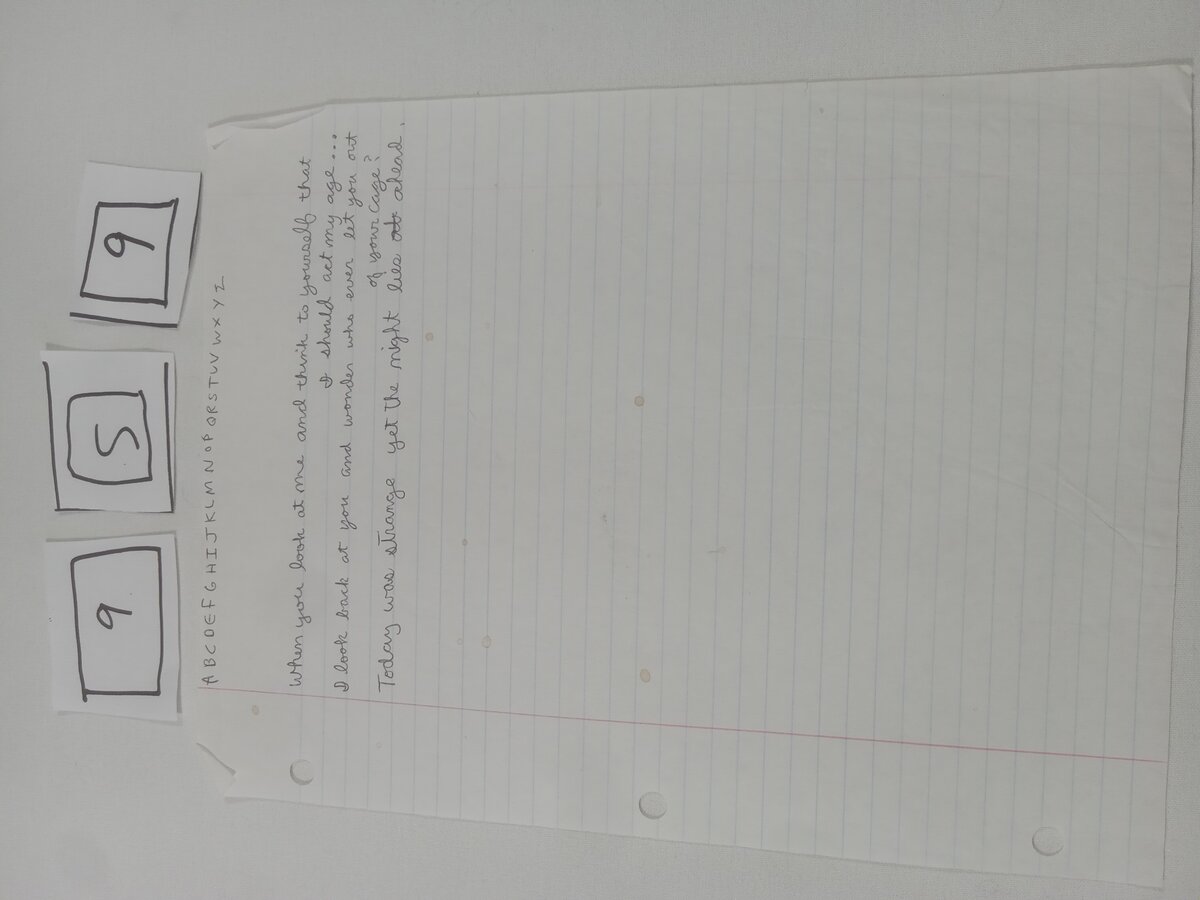 6 5 6
A B C D E F G H I J K L M N O P Q R S T U V W X Y Z
When you look at me and think to yourself that
I should act my age...
I look back at you and wonder who ever let you out
of your cage?
Today was strange yet the night lies ahead.